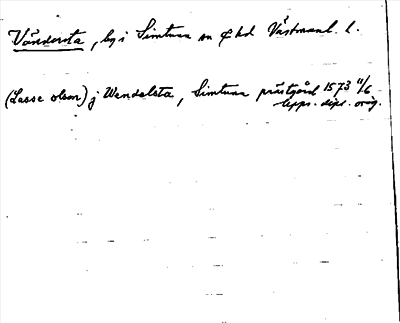 Vändersta, by i Simtuna sn o hd Västmanl. l.
(Lasse olson) j Wendelsta, Simtuna prästgård 1573 11/6
Upps. dipl. orig.